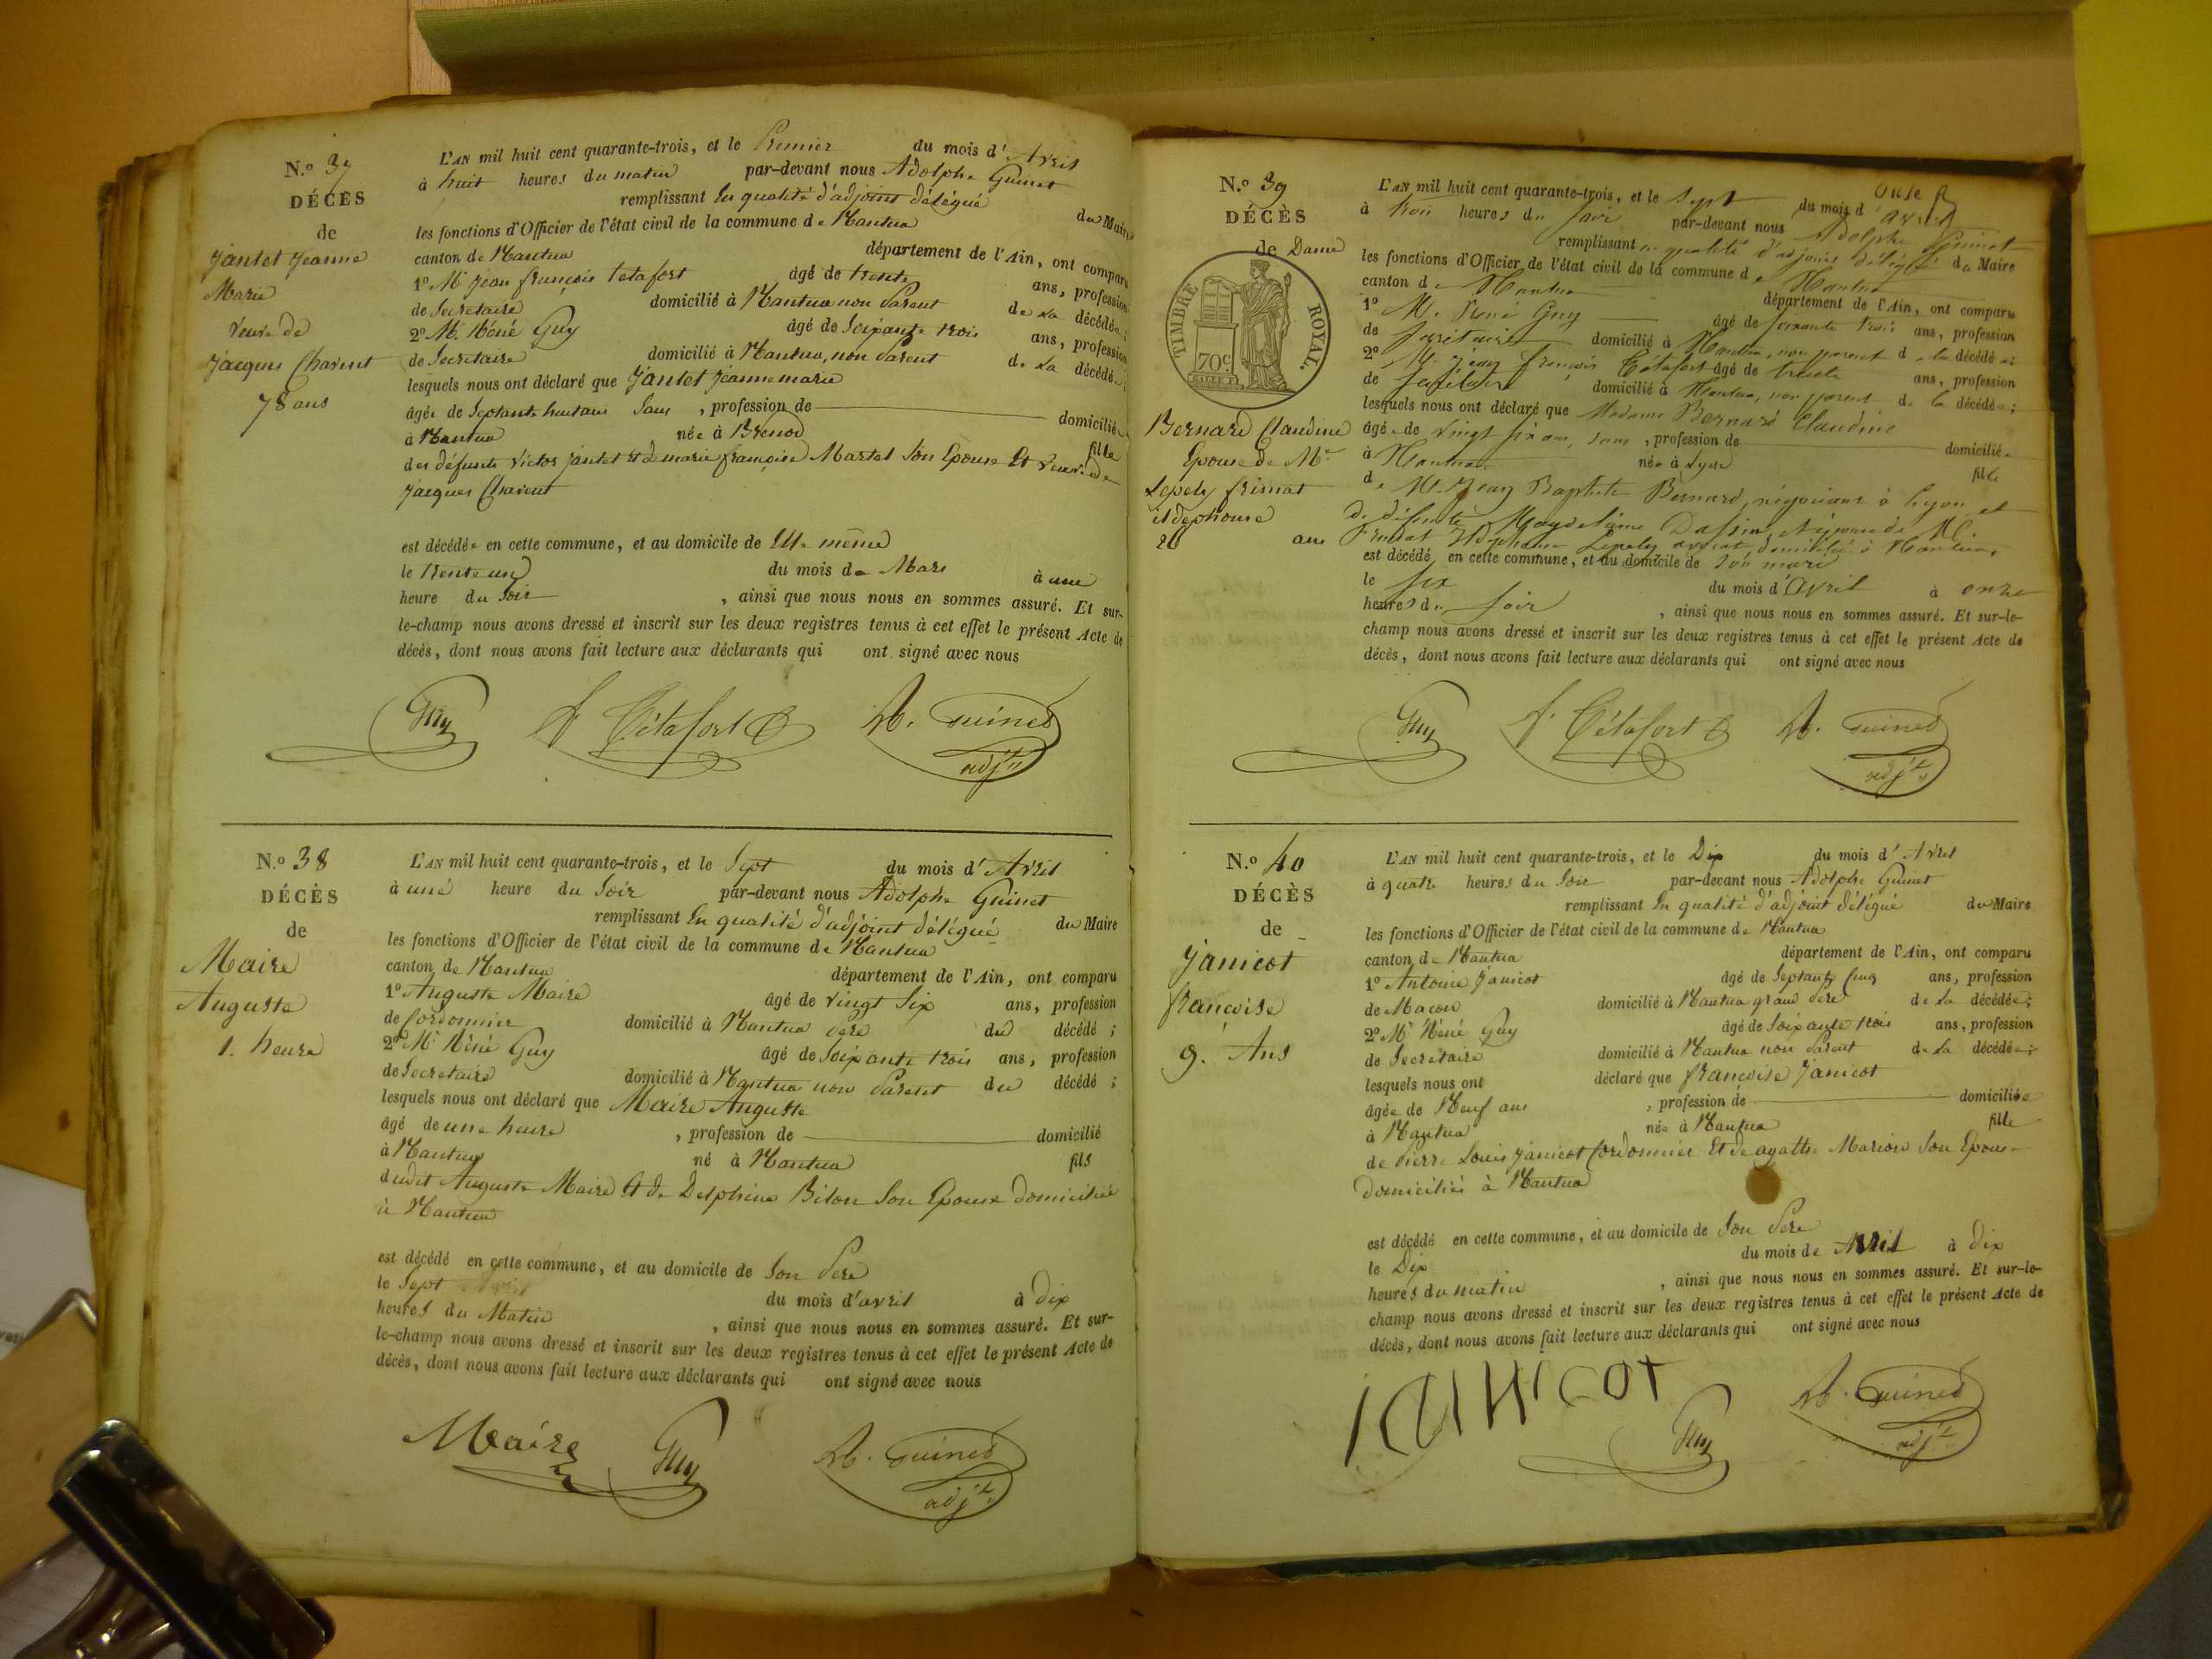 N.° 37
DÉCÈS
de
Jantet Jeanne
Marie
Veuve de
Jacques Charent
78 ans
L'AN mil huit cent quarante-trois, et le Premier du mois d'Avril
à huit heures du matin par-devant nous Adolphe Guinet
remplissant En qualité d'adjoint délégué du Maire
les fonctions d'Officier de l'état civil de la commune de Nantua
canton de Nantua département de l'Ain, ont comparu
1° Mr Jean françois Tetafort âgé de trente ans, profession
de Secretaire domicilié à Nantua non Parent de La décédée;
2° Mr. Réné Guy âgé de Soixante trois ans, profession
de Secretaire domicilié à Nantua, non Parent de La décédée;
lesquels nous ont déclaré que Jantet Jeanne marie
âgée de Septante huit ans Sans , profession de domiciliée
à Nantua née à Brenod fille
des défunts Victor Jantet et de marie françoise Martel Son Epouse Et Veuve de
Jacques Charent
est décédée en cette commune, et au domicile de Elle même
le trente un du mois de Mars à une
heure du Soir , ainsi que nous nous en sommes assuré. Et sur-
le-champ nous avons dressé et inscrit sur les deux registres tenus à cet effet le présent Acte de
décès, dont nous avons fait lecture aux déclarants qui ont signé avec nous
Guy f Tétafort A. Guinet
adjt
N.° 38
DÉCÈS
de
Maire
Auguste
1. heure
L'AN mil huit cent quarante-trois, et le Sept du mois d'Avril
à une heure du Soir par-devant nous Adolphe Guinet
remplissant En qualité d'adjoint délégué du Maire
les fonctions d'Officier de l'état civil de la commune de Nantua
canton de Nantua département de l'Ain, ont comparu
1° Auguste Maire âgé de vingt Six ans, profession
de Cordonnier domicilié à Nantua Père du décédé ;
2° Mr Réné Guy âgé de Soixante trois ans, profession
de Secretaire domicilié à Nantua non Parent du décédé ;
lesquels nous ont déclaré que Maire Auguste
âgé de une heure , profession de domicilié
à Nantua né à Nantua fils
dudit Auguste Maire Et de Delphine Biton Son Epouse domiciliée
à Nantua
est décédé en cette commune, et au domicile de Son Père
le Sept du mois d'avril à dix
heures du Matin , ainsi que nous nous en sommes assuré. Et sur-
le-champ nous avons dressé et inscrit sur les deux registres tenus à cet effet le présent Acte de
décès, dont nous avons fait lecture aux déclarants qui ont signé avec nous
Maire Guy A. Guinet
adjt
N.° 39
DÉCÈS
de Dame
TIMBRE ROYAL.
70c
Bernard Claudine
Epouse de Mr
Lepely frimat
ildephonse
26 ans
L'AN mil huit cent quarante-trois, et le Sept du mois d'avril
à trois heures du Soir par-devant nous Adolphe Guinet
remplissant en qualité d'adjoint délégué du Maire
les fonctions d'Officier de l'état civil de la commune de Nantua
canton de Nantua département de l'Ain, ont comparu
1° M. René Guy âgé de soixante trois ans, profession
de secrétaire domicilié à Nantua, non parent de la décédée;
2° M. Jean François Tétafort âgé de trente ans, profession
de secrétaire domicilié à Nantua, non parent de la décédée;
lesquels nous ont déclaré que Madame Bernard Claudine
âgée de vingt six ans, sans , profession de domiciliée
à Nantua née à Lyon fille
de Mr Jean Baptiste Bernard, négociant à Lyon et
de défunte Magdelaine épouse de M.
Ildephonse Lepely avocat, domicilié à Nantua,
est décédé en cette commune, et au domicile de son mari
le six du mois d'avril à onze
heures du soir , ainsi que nous nous en sommes assuré. Et sur-le-
champ nous avons dressé et inscrit sur les deux registres tenus à cet effet le présent Acte de
décès, dont nous avons fait lecture aux déclarants qui ont signé avec nous
Guy f. Tétafort A. Guinet
adjt
N.° 40
DÉCÈS
de
Janicot
francoise
9. Ans
L'AN mil huit cent quarante-trois, et le Dix du mois d'Avril
à quatre heures du Soir par-devant nous Adolphe Guinet
remplissant En qualité d'adjoint délégué du Maire
les fonctions d'Officier de l'état civil de la commune de Nantua
canton de Nantua département de l'Ain, ont comparu
1° Antoine Janicot âgé de Septante Cinq ans, profession
de Macon domicilié à Nantua grand Père de La décédée;
2° Mr Réné Guy âgé de Soixante trois ans, profession
de Secrétaire domicilié à Nantua non Parent de La décédée;
lesquels nous ont déclaré que francoise Janicot
âgée de Neuf ans , profession de domiciliée
à Nantua née à Nantua fille
de Pierre Louis Janicot Cordonnier Et de agathe Marion Son Epouse
domiciliés à Nantua
est décédé en cette commune, et au domicile de Son Père
le Dix du mois de Avril à dix
heures du matin , ainsi que nous nous en sommes assuré. Et sur-le-
champ nous avons dressé et inscrit sur les deux registres tenus à cet effet le présent Acte de
décès, dont nous avons fait lecture aux déclarants qui ont signé avec nous
janicot Guy A. Guinet
adjt